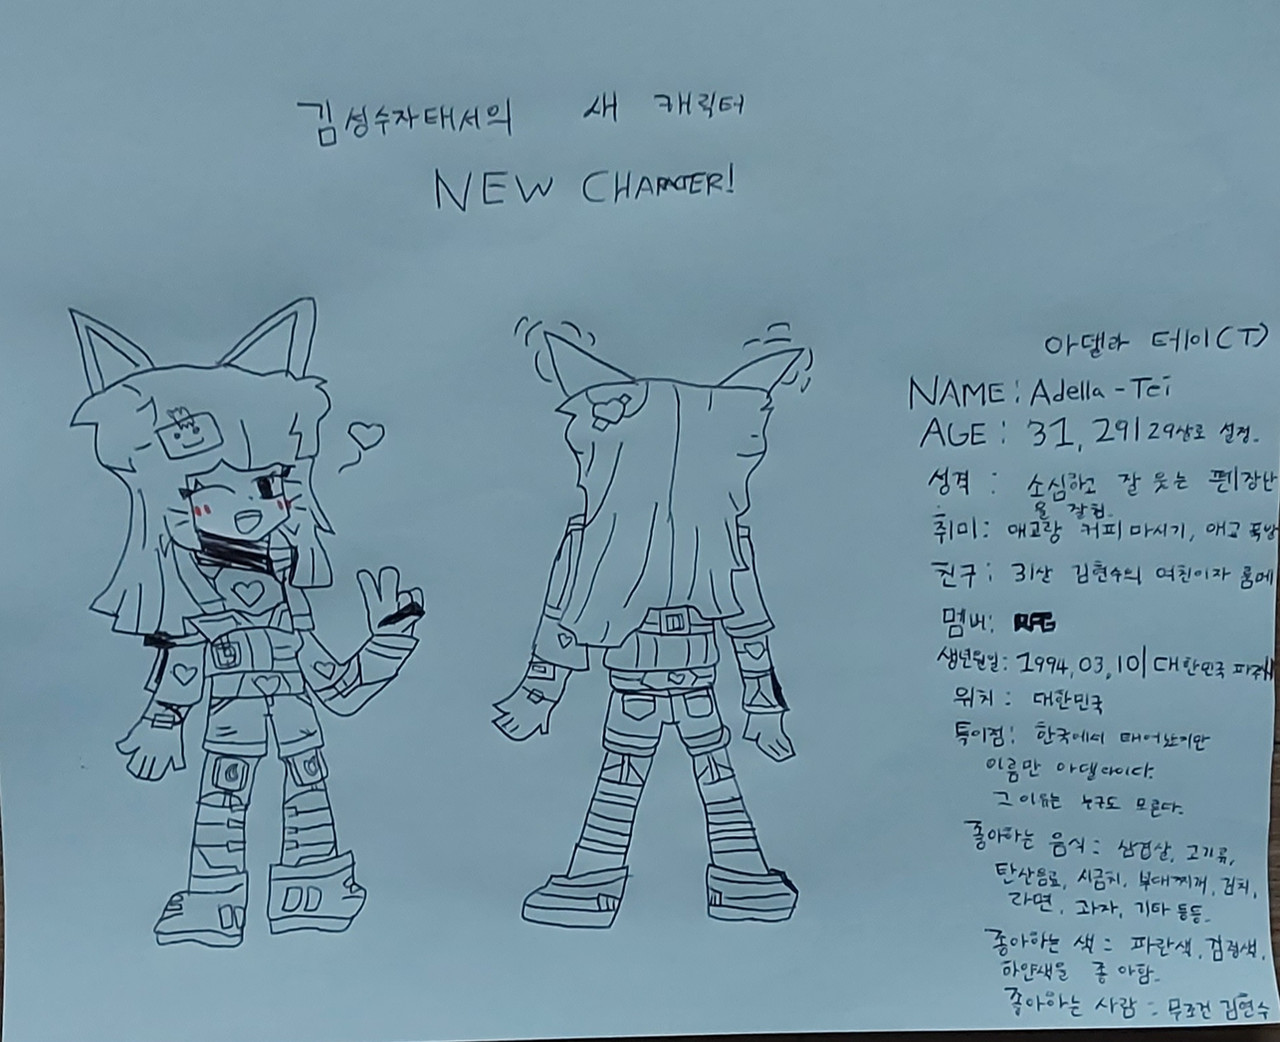 김성수자태서의 새 캐릭터
NEW CHARACTER!
아델라 테이(T)
NAME: Adella-Tei
AGE: 31, 29| 29살로 설정.
성격: 소심하고 잘 웃는 편|장난
을 잘침.
취미: 애교랑 커피 마시기, 애교
친구: 31살 김현수의 여친이자 룸메
멤버:
생년월일: 1994, 03, 10| 대한민국
위치: 대한민국
특이점: 한국에서 태어났지만
이름만 아델라이다.
그 이유는 누구도 모른다.
좋아하는 음식: 삼겹살, 고기류,
탄산음료, 시금치, 부대찌개, 김치,
라면, 과자, 기타 등등.
좋아하는 색: 파란색, 검정색,
하얀색을 좋아함.
좋아하는 사람: 무조건 김현수